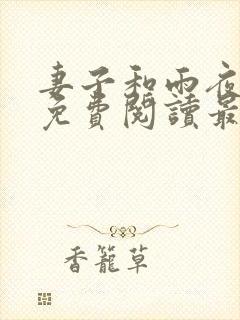 妻子和雨夜
免費閱讀最
香籠草